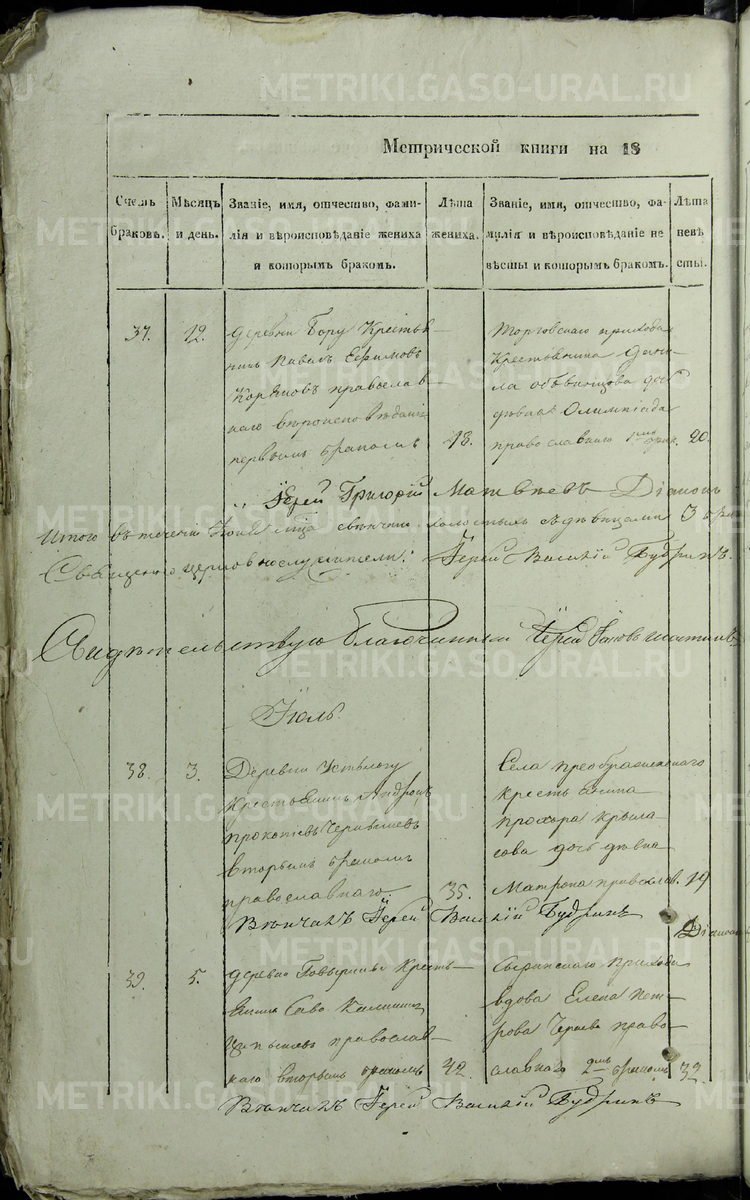 METRIKI.GASO-URAL.RU
Метрической книги на 18
Счетъ браковъ. Мѣсяцъ и день. Званіе, имя, отчество, фамилія и вѣроисповѣданіе жениха и которымъ бракомъ. Лѣта жениха. Званіе, имя, отчество, фамилія и вѣроисповѣданіе невѣсты и которымъ бракомъ. Лѣта невѣсты.
37. 12. деревни Бору Крестья-
нинъ Павелъ Ефимовъ
православ-
наго вѣроисповѣданія
первымъ бракомъ 18.
Торговскаго прихода
Крестьянина Дани-
ла дочь
дѣвка Олимпіада
православнаго 1мъ брак. 20.
Іерей Григорій Матвѣевъ Діаконъ
Итого въ теченіи Іюня мца холостыхъ съ дѣвицами 3
Священно церковнослужители: Іерей Василій Будринъ.
Свидѣтельствую благочинный Іерей Іаковъ
Іюль.
38. 3. Деревни
Крестьянинъ Андрей
вторымъ бракомъ
православнаго. 35.
Села преображенскаго
крестьянина
прохора крыла-
сова дочь дѣвка
Матрона православ. 19
Вѣнчалъ Іерей Василій Будринъ
Діаконъ
39. 5. деревни Кресть-
янинъ Сава
православ-
наго вторымъ бракомъ 42.
прихода
вдова Елена Пет-
рова право-
славнаго 2мъ бракомъ 32.
Вѣнчалъ Іерей Василій Будринъ